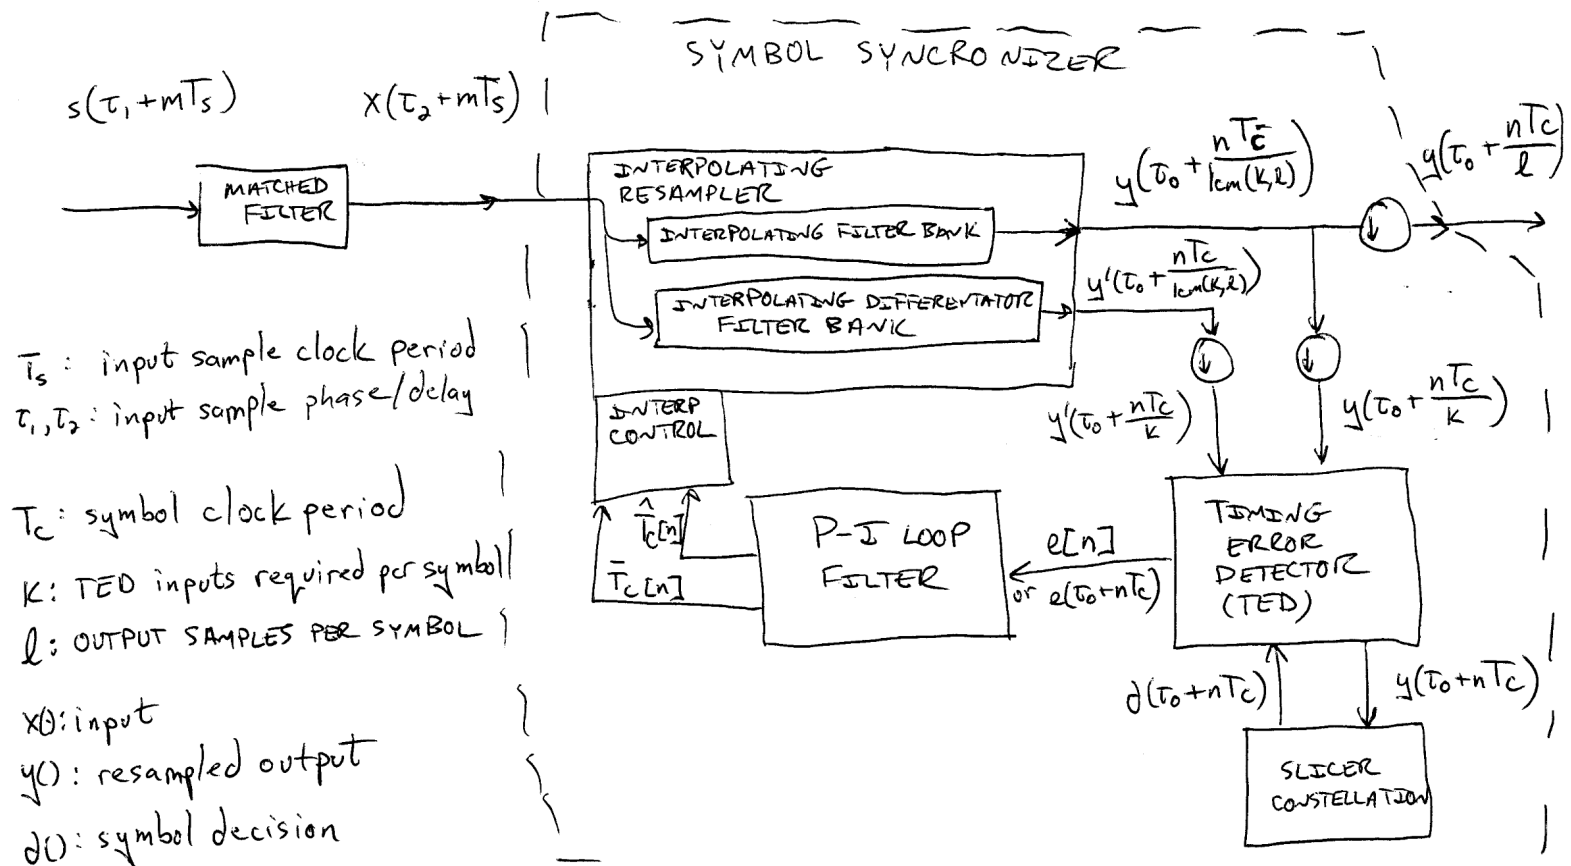 SYMBOL SYNCRONIZER
s(τ₁+mTs)
x(τ₂+mTs)
MATCHED
FILTER
INTERPOLATING
RESAMPLER
INTERPOLATING FILTER BANK
INTERPOLATING DIFFERENTATOR
FILTER BANK
y(τ₀ + nTc/lcm(k,l))
y(τ₀ + nTc/l)
y'(τ₀ + nTc/lcm(k,l))
↓
↓
↓
y'(τ₀ + nTc/k)
y(τ₀ + nTc/k)
INTERP
CONTROL
T̂c[n]
T̄c[n]
P-I LOOP
FILTER
e[n]
or e(τ₀+nTc)
TIMING
ERROR
DETECTOR
(TED)
d(τ₀+nTc)
y(τ₀+nTc)
SLICER
CONSTELLATION
Ts: input sample clock period
τ₁,τ₂: input sample phase/delay
Tc: symbol clock period
K: TED inputs required per symbol
l: OUTPUT SAMPLES PER SYMBOL
x(): input
y(): resampled output
d(): symbol decision